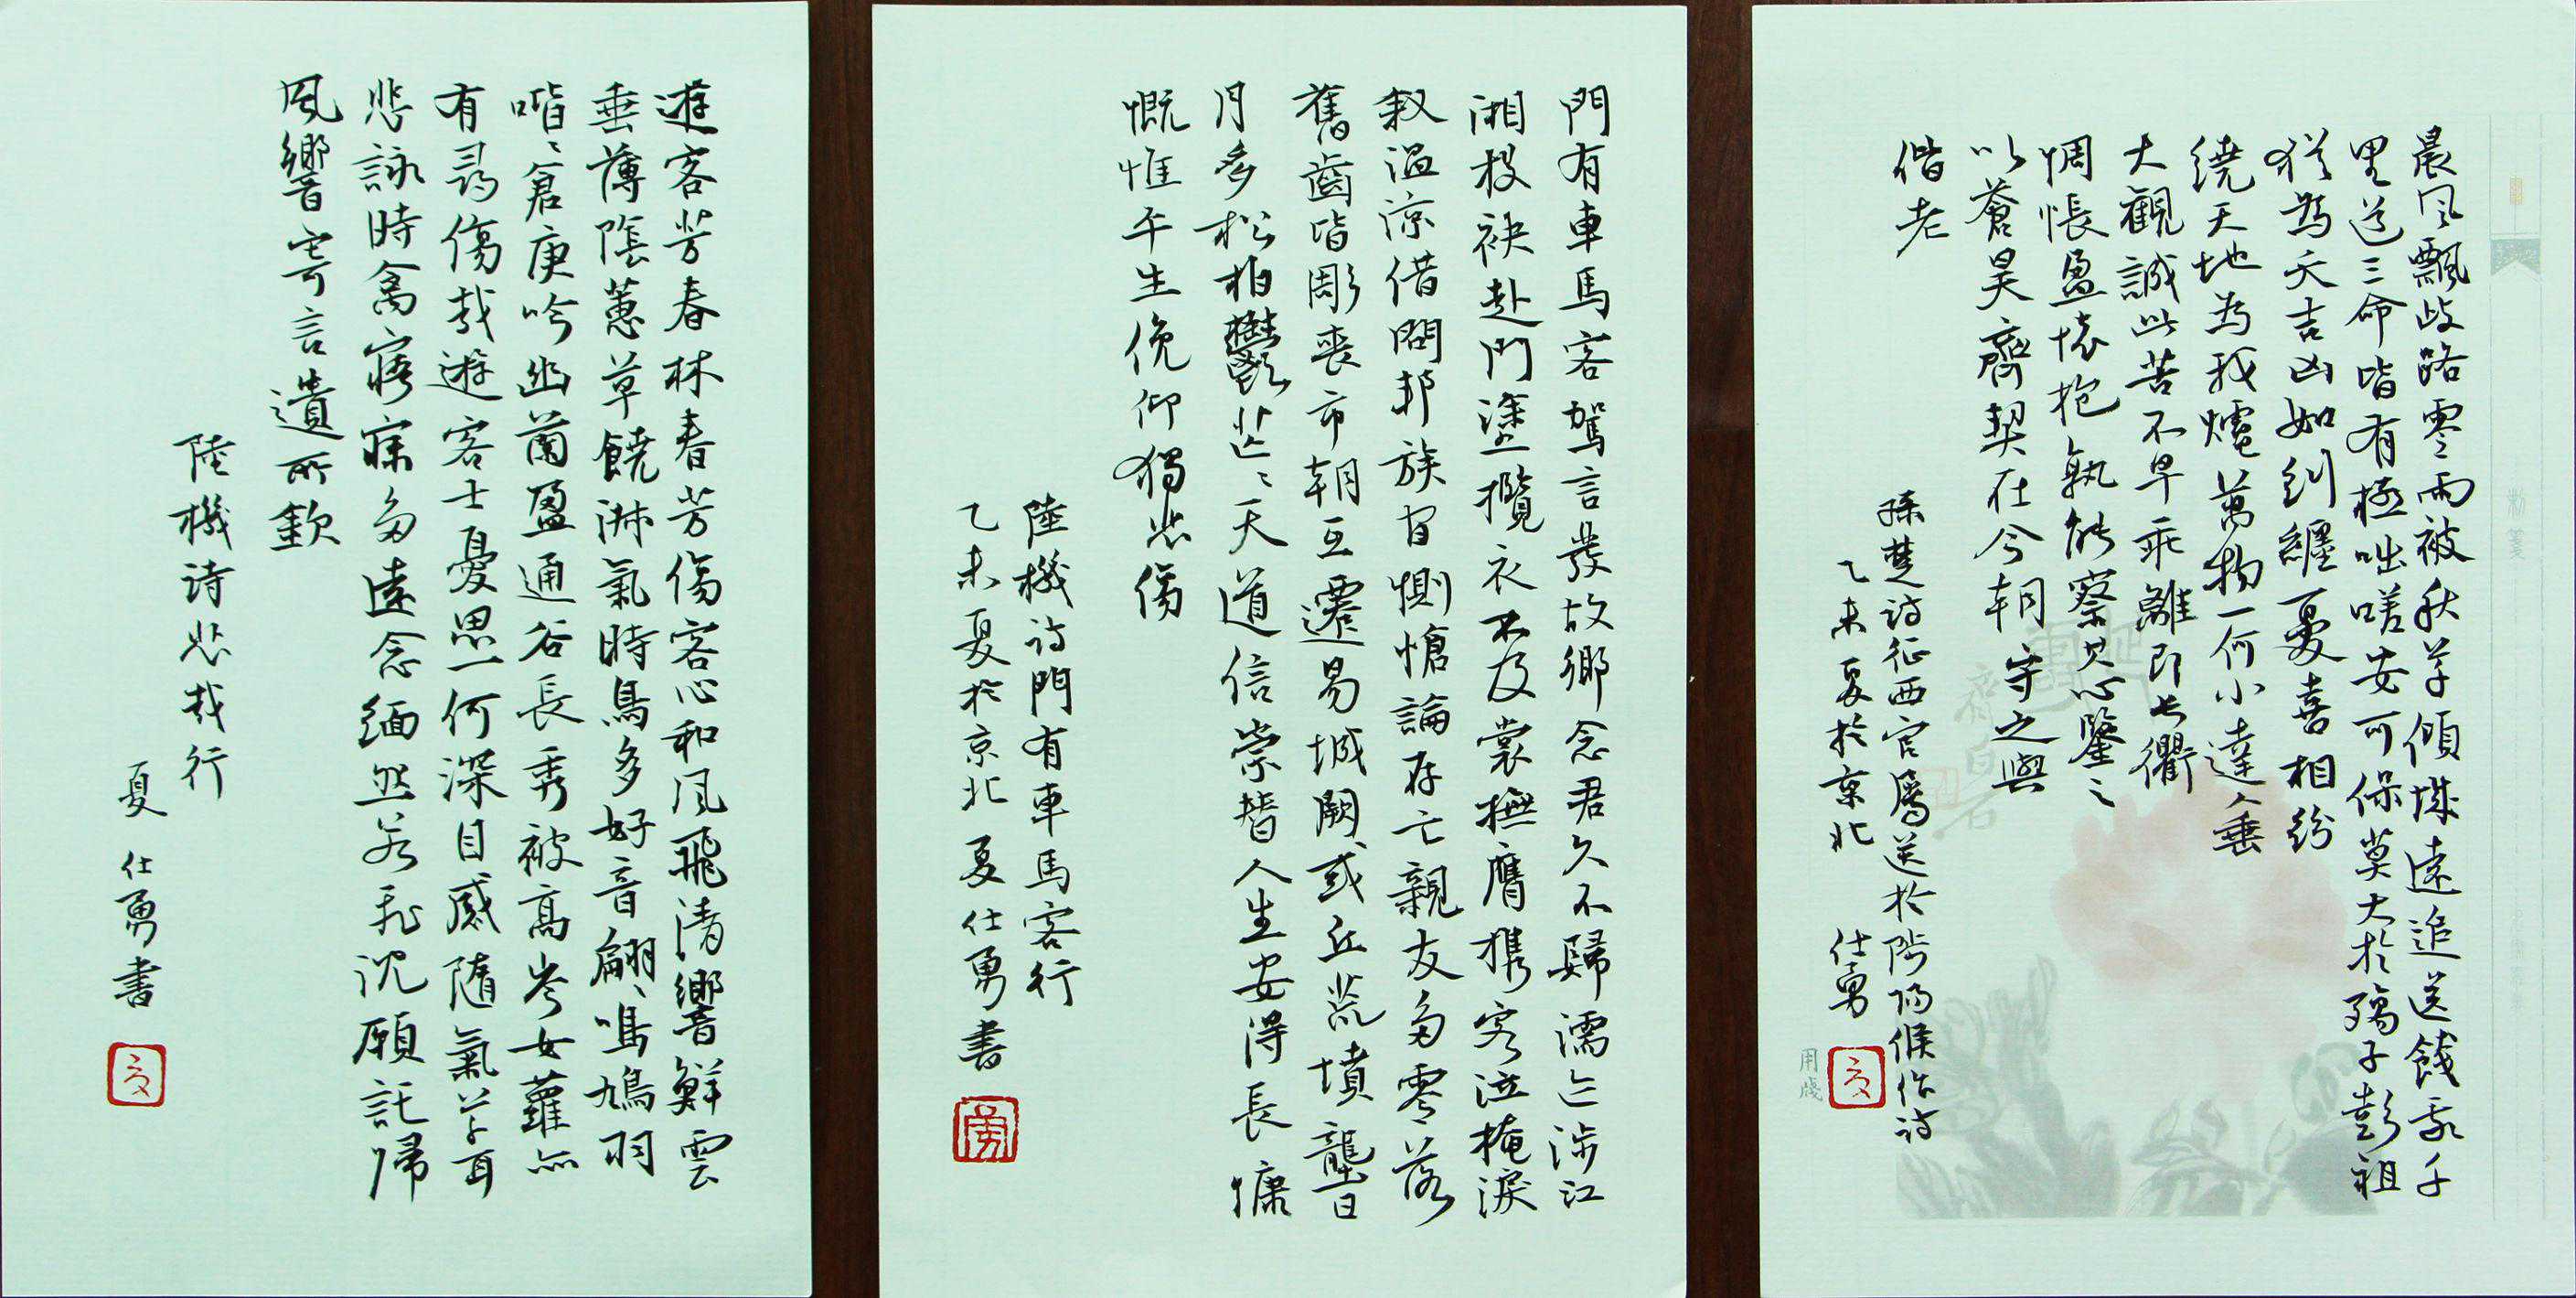 晨風飄歧路零雨被秋草傾城遠追送餞我千
里道三命皆有極咄嗟安可保莫大於殤子彭祖
猶為夭吉凶如糾纏憂喜相紛
繞天地為我爐萬物一何小達人垂
大觀誠此苦不早乖離即長衢
惆悵盈懷抱孰能察其心鑒之
以蒼昊齊契在今朝守之與
偕老
孫楚詩征西官屬送於陟陽候作詩
乙未夏於京北 仕勇
用箋
門有車馬客駕言發故鄉念君久不歸濡迹涉江
湘投袂赴門塗攬衣不及裳撫膺攜客泣掩淚
敘溫涼借問邦族間惻愴論存亡親友多零落
舊齒皆彫喪市朝互遷易城闕或丘荒墳壟日
月多松柏鬱芒々天道信崇替人生安得長慷
慨惟平生俛仰獨悲傷
陸機詩門有車馬客行
乙未夏於京北夏仕勇書
遊客芳春林春芳傷客心和風飛清響鮮雲
垂薄蔭蕙草饒淋氣時鳥多好音翩々鳴鳩羽
喈々倉庚吟幽蘭盈通谷長秀被高岑女蘿亦
有尋傷哉遊客士憂思一何深目感隨氣草耳
悲詠時禽寤寐多遠念緬然若飛沈願託歸
風響寄言遺所欽
陸機詩悲哉行
夏仕勇書